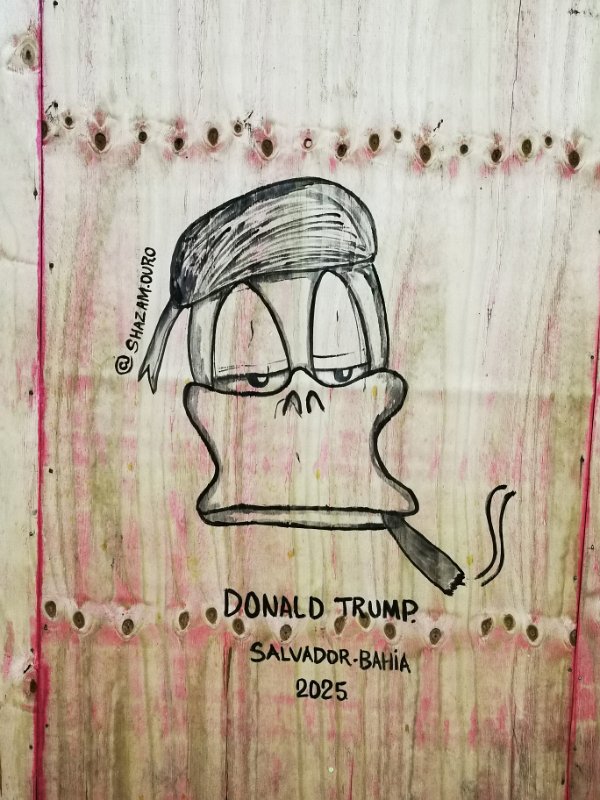 @SHAZAM.DURO
DONALD TRUMP.
SALVADOR-BAHiA
2025